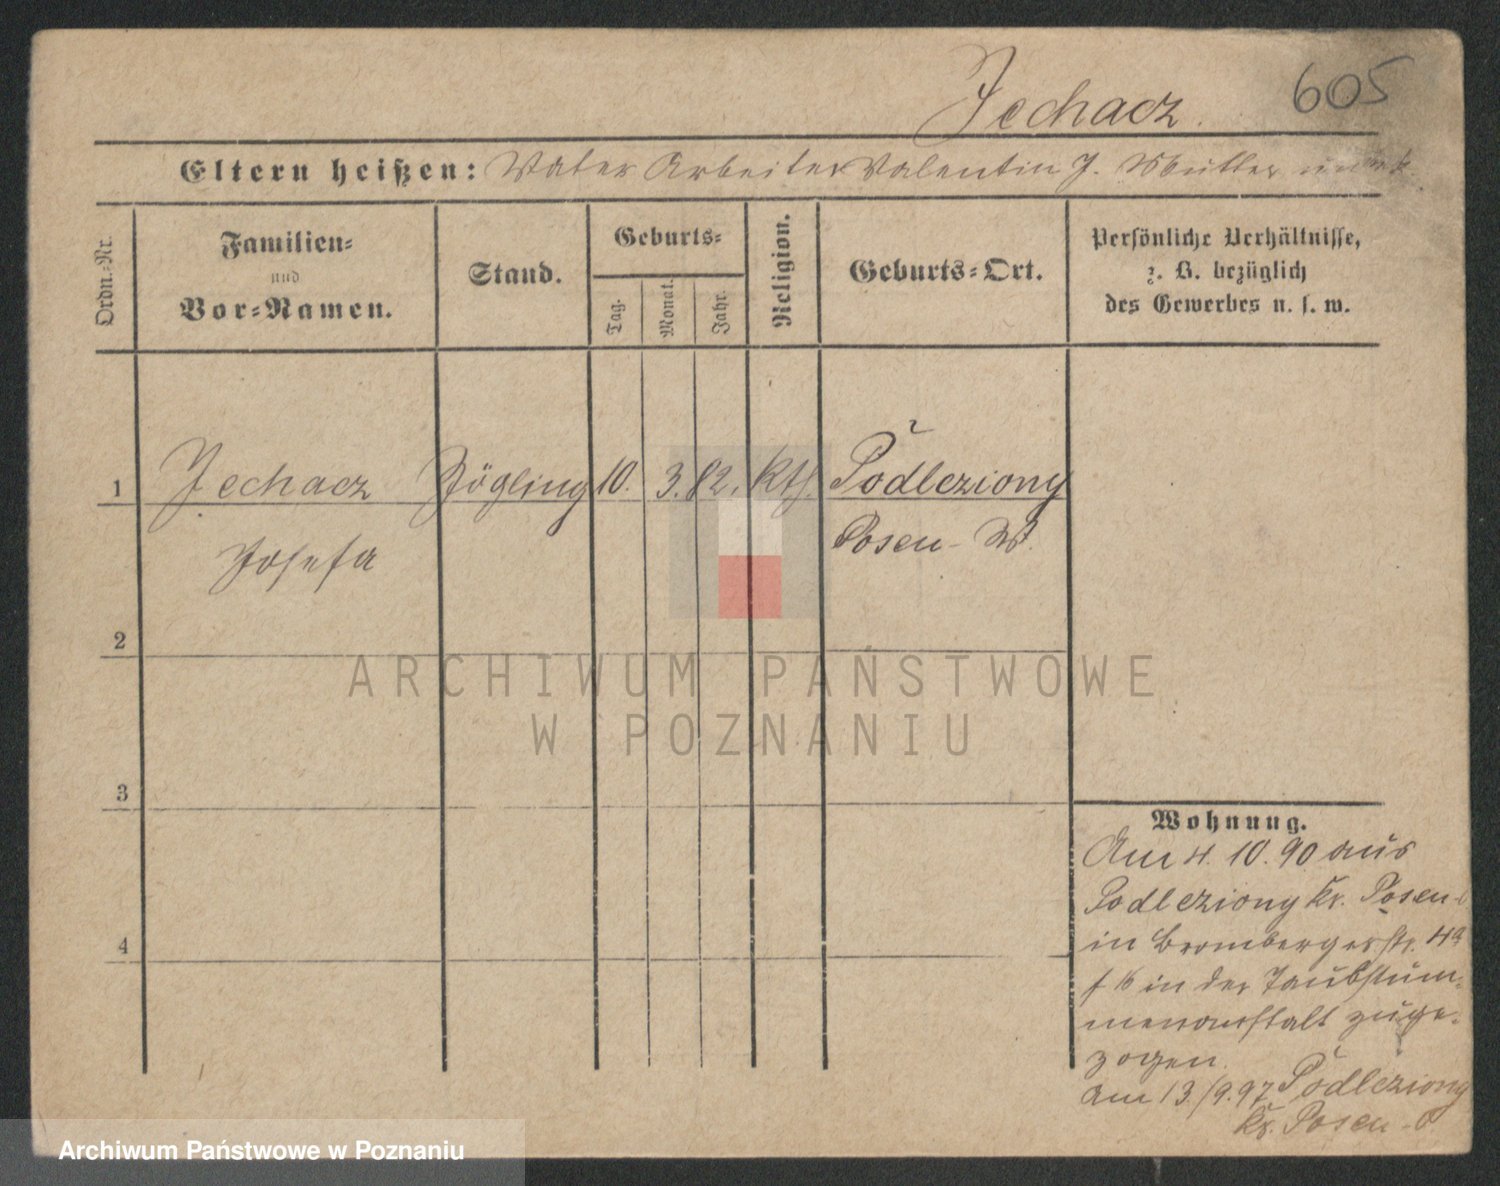 Jechacz. 605
Eltern heißen: Vater Arbeiter Valentin J. Mutter unbek.
Ordn.-Nr.
Familien-
und
Vor-Namen.
Stand.
Geburts-
Tag.
Monat.
Jahr.
Religion.
Geburts-Ort.
Persönliche Verhältnisse,
z. B. bezüglich
des Gewerbes u. s. w.
1 Jechacz Zögling 10. 3. 82. kth. Podleziony
Josefa Posen - W.
2
3
4
Wohnung.
Am 4. 10. 90 aus
Podleziony Kr. Posen-
in Brombergerstr. 4a
in der Taubstum-
menanstalt zuge-
zogen.
Am 13./9.97 Podleziony
Kr. Posen - O
ARCHIWUM PAŃSTWOWE
W POZNANIU
Archiwum Państwowe w Poznaniu